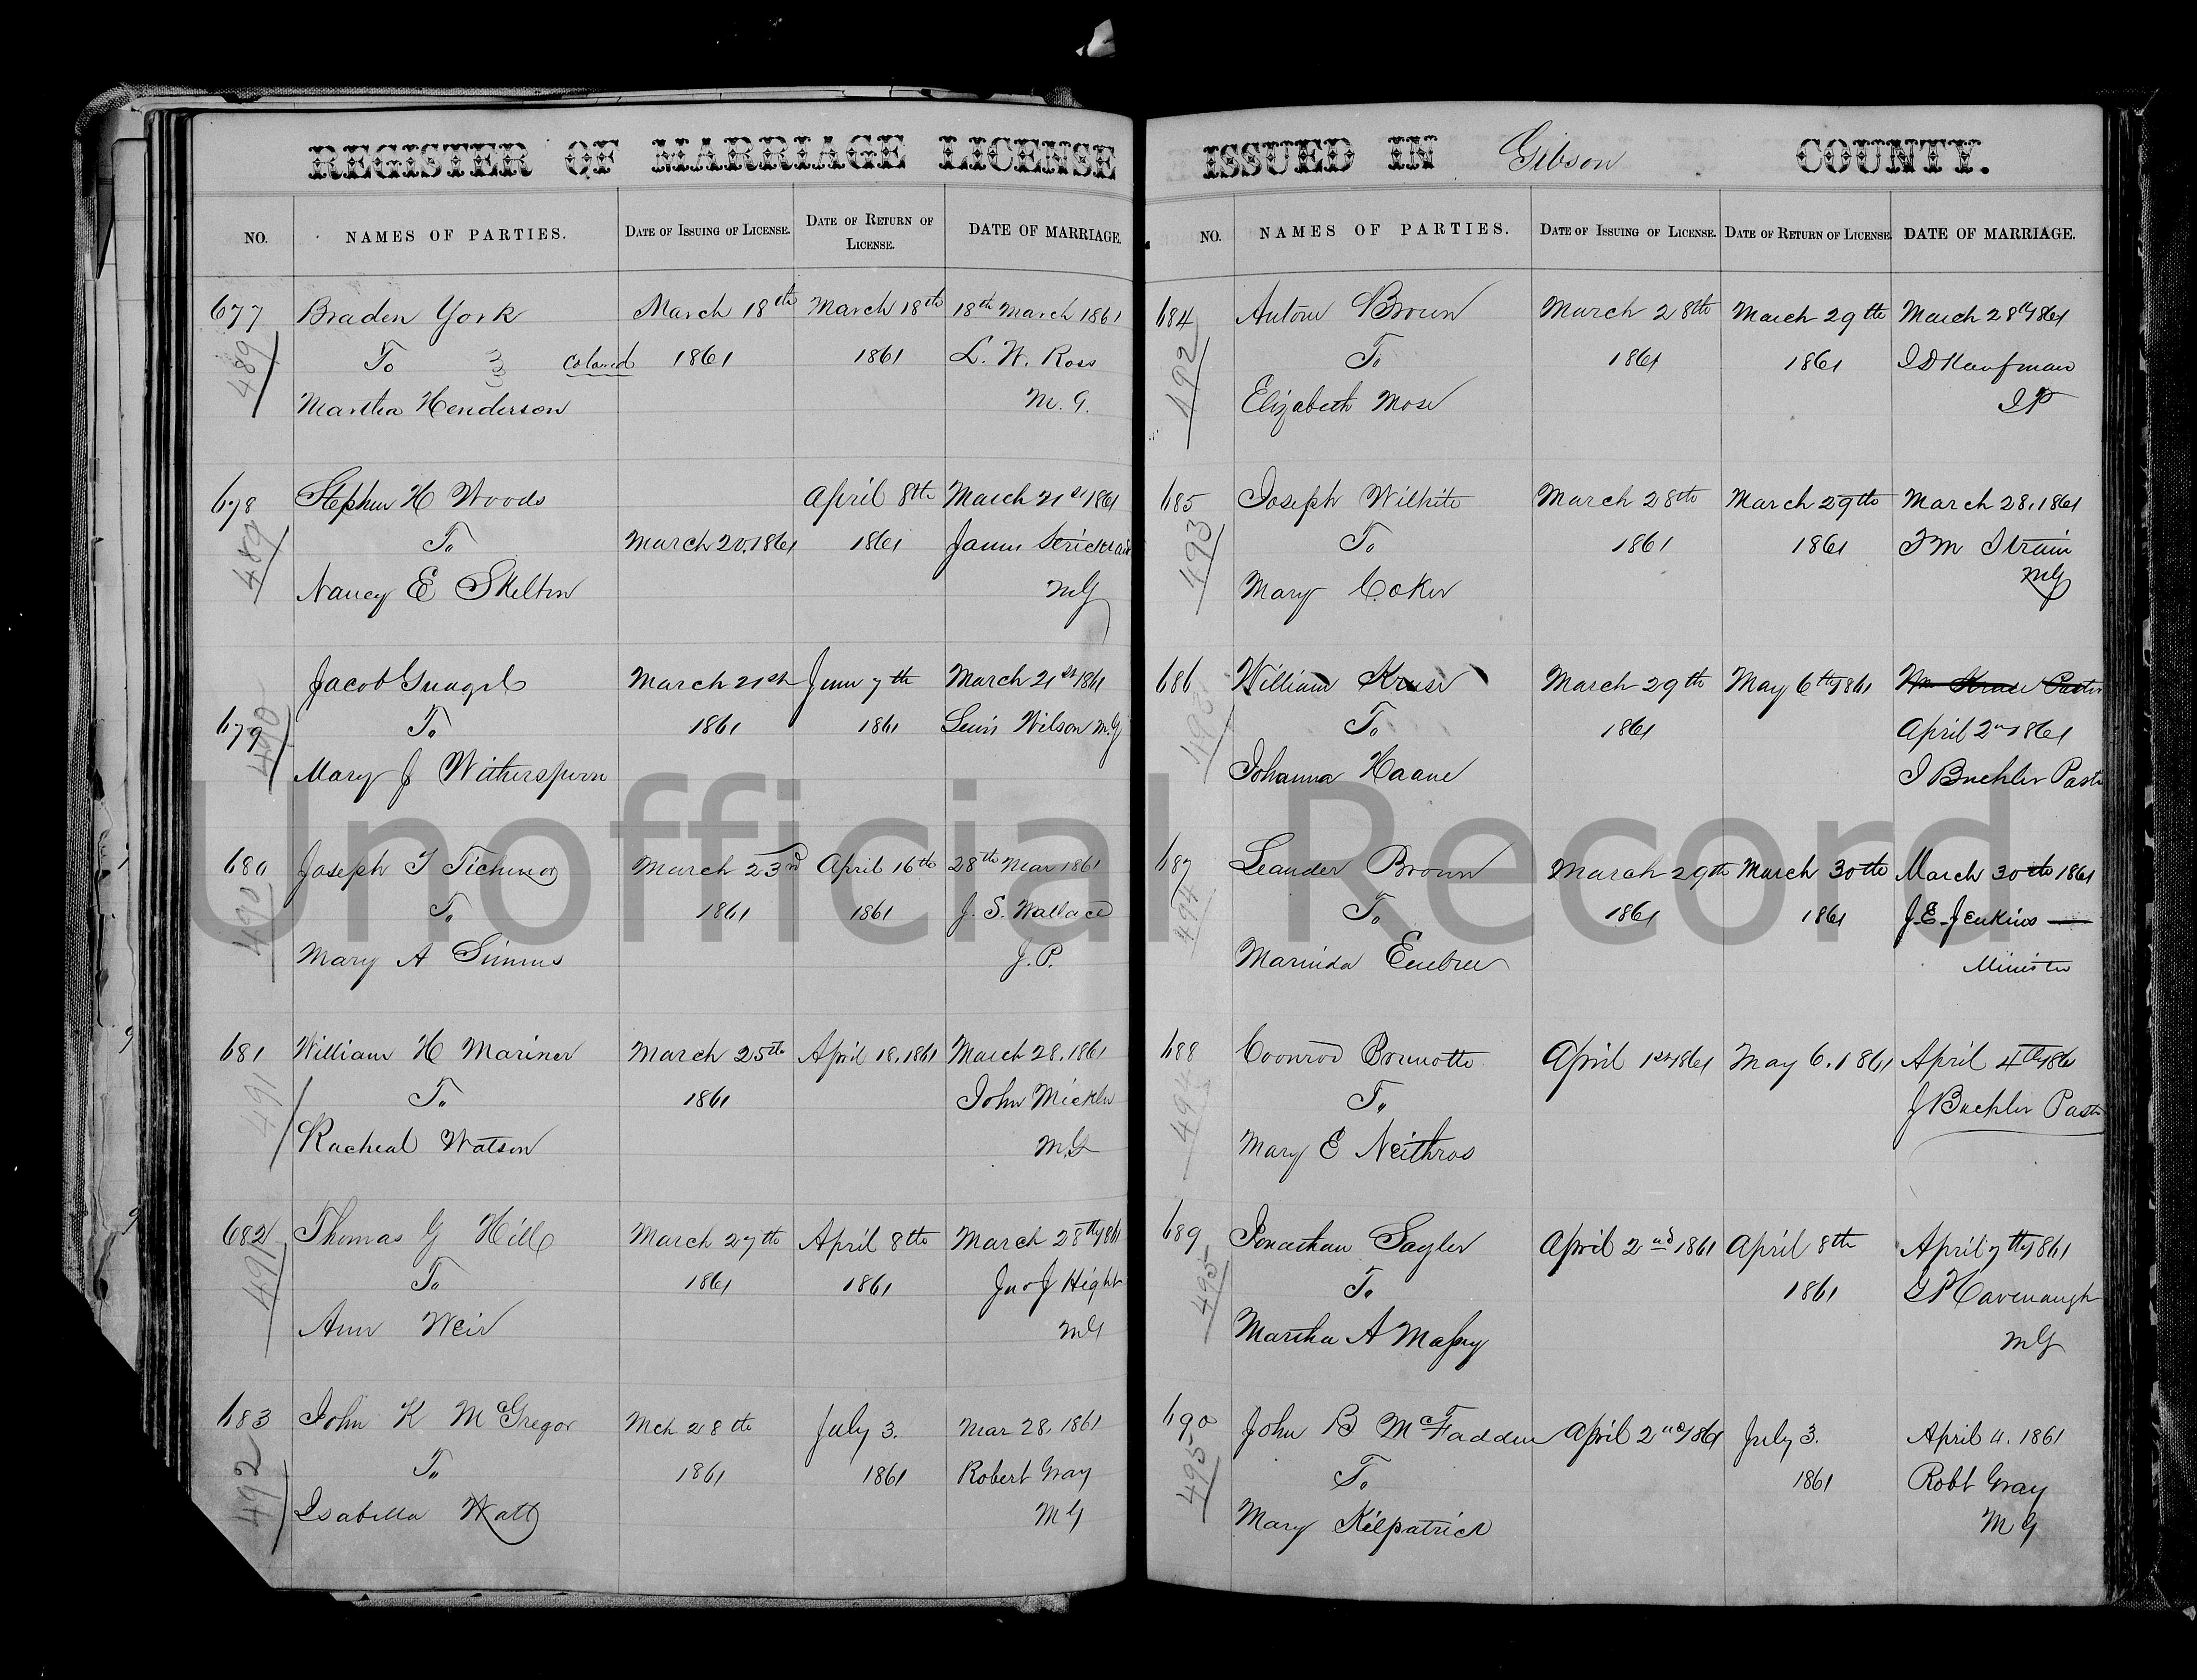 REGISTER OF MARRIAGE LICENSE
NO. NAMES OF PARTIES. DATE OF ISSUING OF LICENSE. DATE OF RETURN OF LICENSE. DATE OF MARRIAGE.
677 Braden York March 18th March 18th 18th March 1861
489 To colored 1861 1861 L. W. Ross
Martha Henderson M. G.
678 Stephen H Woods April 8th March 21st 1861
489 To March 20, 1861 1861 James
Nancy E Skelton MG
Jacob March 21st June 7th March 21st 1861
679 490 To 1861 1861 Lewis Wilson M.G
Mary J Witherspoon
680 Joseph T Tichenor March 23rd April 16th 28th Mar 1861
490 To 1861 1861 J. S. Wallace
Mary A Simms J. P.
681 William H Mariner March 25th April 18, 1861 March 28, 1861
491 To 1861 John Mickler
Racheal Watson M.G
682 Thomas G Hill March 27th April 8th March 28th 1861
491 To 1861 1861 Jno J Hight
Ann Weir MG
683 John K McGregor Mch 28th July 3. Mar 28, 1861
492 To 1861 1861 Robert Gray
Isabella Watt MG
ISSUED IN Gibson COUNTY.
NO. NAMES OF PARTIES. DATE OF ISSUING OF LICENSE. DATE OF RETURN OF LICENSE. DATE OF MARRIAGE.
684 Antone Brown March 28th March 29th March 28th 1861
492 To 1861 1861 J D Kaufman
Elizabeth Mose JP
685 Joseph Wilhite March 28th March 29th March 28, 1861
493 To 1861 1861 T M Strain
Mary Coker MG
686 William Kruse March 29th May 6th 1861 Wm Kruse Pastor
To 1861 April 2nd 1861
Johanna Haane J Buehler Pastr
687 Leander Brown March 29th March 30th March 30th 1861
494 To 1861 1861 J. E. Jenkins
Marinda Embree Minister
688 Coonrod April 1st 1861 May 6, 1861 April 4th 1861
494 To J Buehler Pastr
Mary E Neithros
689 Jonathan Sayler April 2nd 1861 April 8th April 7th 1861
495 To 1861 G P Cavenaugh
Martha A Massey MG
690 John B McFadden April 2nd 1861 July 3. April 4. 1861
495 To 1861 Robt Gray
Mary Kilpatrick MG
Unofficial Record